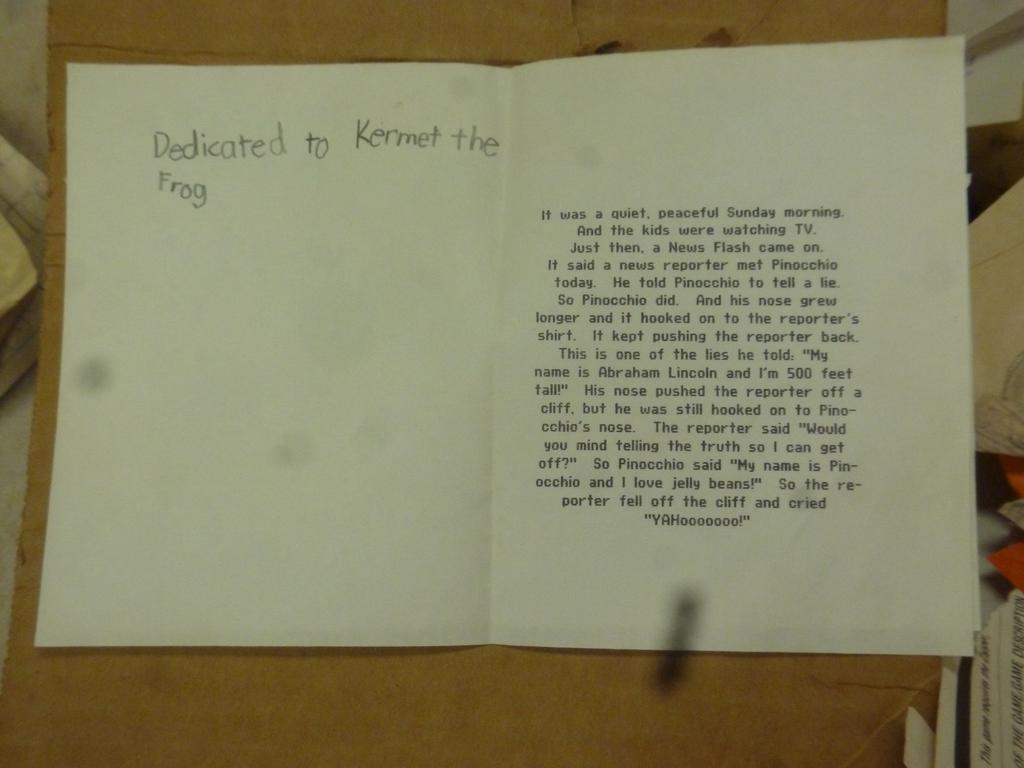 Dedicated to Kermet the
Frog
It was a quiet, peaceful Sunday morning.
And the kids were watching TV.
Just then, a News Flash came on.
It said a news reporter met Pinocchio
today. He told Pinocchio to tell a lie.
So Pinocchio did. And his nose grew
longer and it hooked on to the reporter's
shirt. It kept pushing the reporter back.
This is one of the lies he told: "My
name is Abraham Lincoln and I'm 500 feet
tall!" His nose pushed the reporter off a
cliff, but he was still hooked on to Pino-
cchio's nose. The reporter said "Would
you mind telling the truth so I can get
off?" So Pinocchio said "My name is Pin-
occhio and I love jelly beans!" So the re-
porter fell off the cliff and cried
"YAHooooooo!"
This game requires the
OF THE GAME:GAME DESCRIPTION